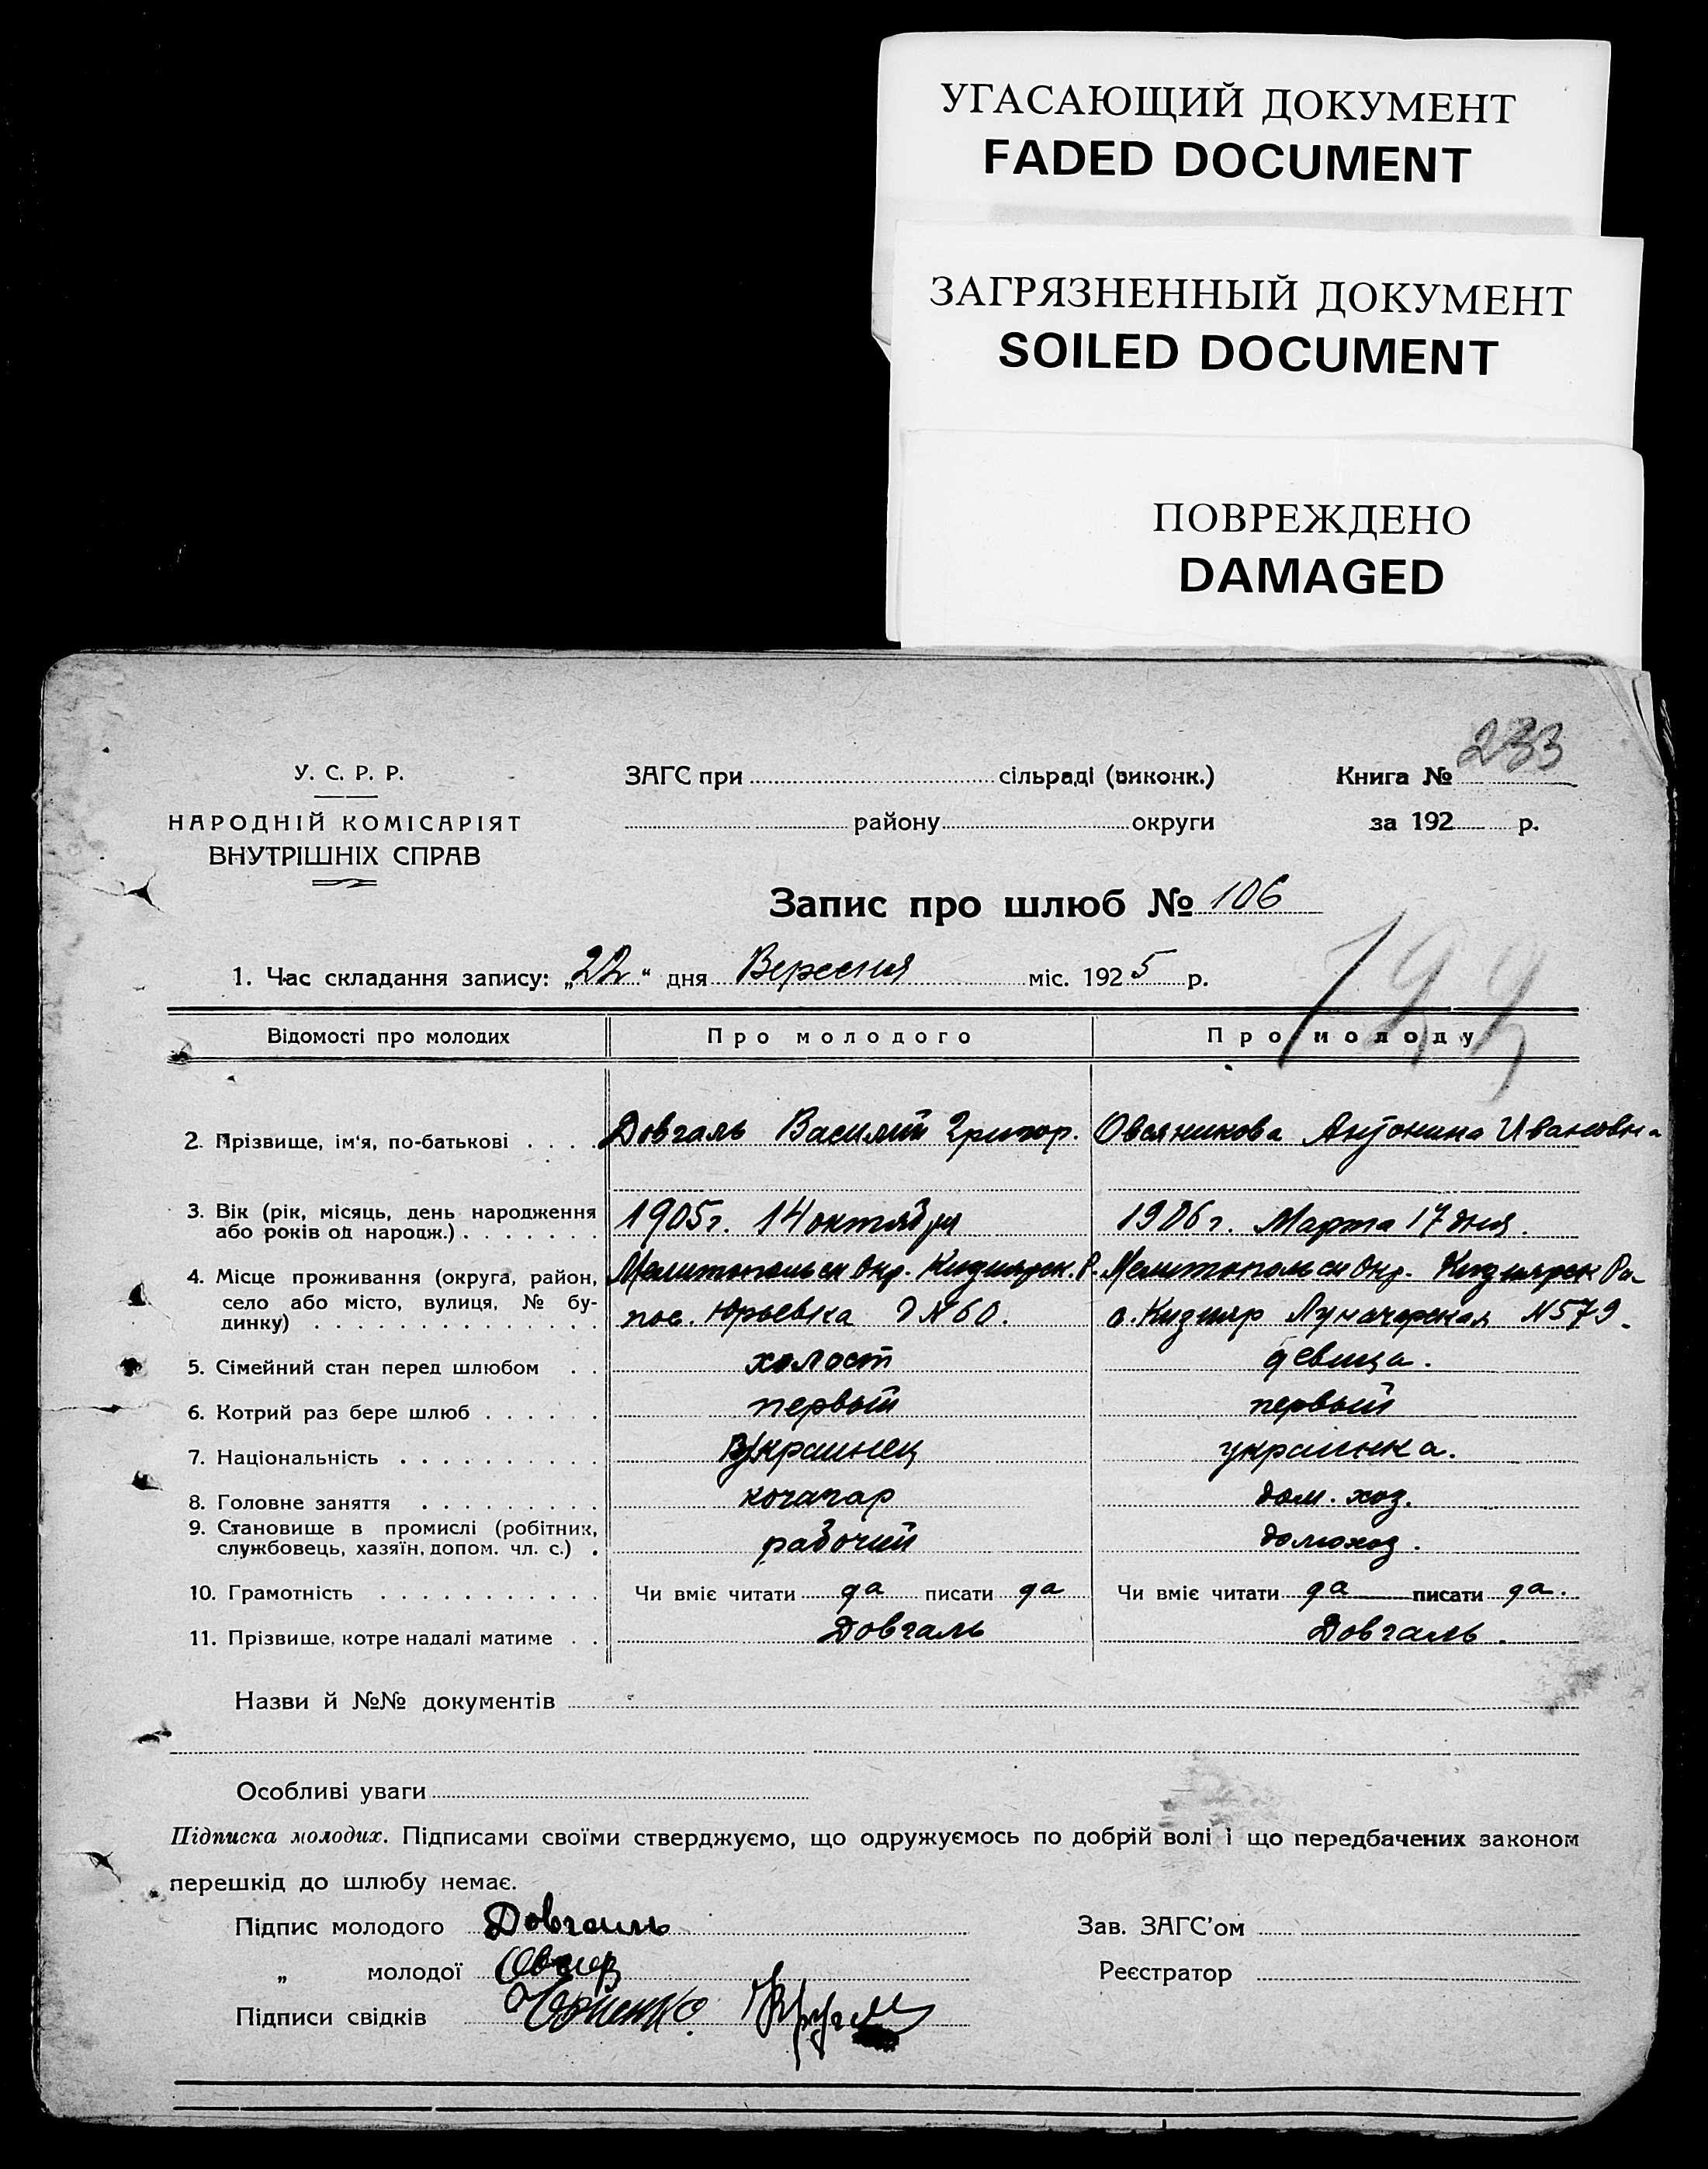 УГАСАЮЩИЙ ДОКУМЕНТ
FADED DOCUMENT
ЗАГРЯЗНЕННЫЙ ДОКУМЕНТ
SOILED DOCUMENT
ПОВРЕЖДЕНО
DAMAGED
233
У. С. Р. Р.
НАРОДНІЙ КОМІСАРІЯТ
ВНУТРІШНІХ СПРАВ
ЗАГС при сільраді (виконк.)
району округи
Книга №
за 192 р.
Запис про шлюб № 106
1. Час складання запису: „22“ дня Вересня міс. 1925 р.
199
Відомості про молодих Про молодого Про молоду
2. Прізвище, ім'я, по-батькові Довгаль Василий Григор. Овсяникова Антонина Ивановна
3. Вік (рік, місяць, день народження
або років од народж.) 1905г. 14 октября 1906г. Марта 17 дня.
4. Місце проживання (округа, район, Мелитопольск Окр. Кизиярск. Р. Мелитопольск Окр. Кизиярск Ра-
село або місто, вулиця, № бу-
динку) пос. Юрьевка д N 60. с. Кизияр Луначарская N579.
5. Сімейний стан перед шлюбом холост девица.
6. Котрий раз бере шлюб первый первый
7. Національність Украинец украинка.
8. Головне заняття кочагар дом. хоз.
9. Становище в промислі (робітник,
службовець, хазяїн, допом. чл. с.) рабочий домохоз.
10. Грамотність Чи вміє читати да писати да Чи вміє читати да писати да.
11. Прізвище, котре надалі матиме Довгаль Довгаль.
Назви й №№ документів
Особливі уваги
Підписка молодих. Підписами своїми стверджуємо, що одружуємось по добрій волі і що передбачених законом
перешкід до шлюбу немає.
Підпис молодого Довгаль
„ молодої
Підписи свідків
Зав. ЗАГС'ом
Реєстратор